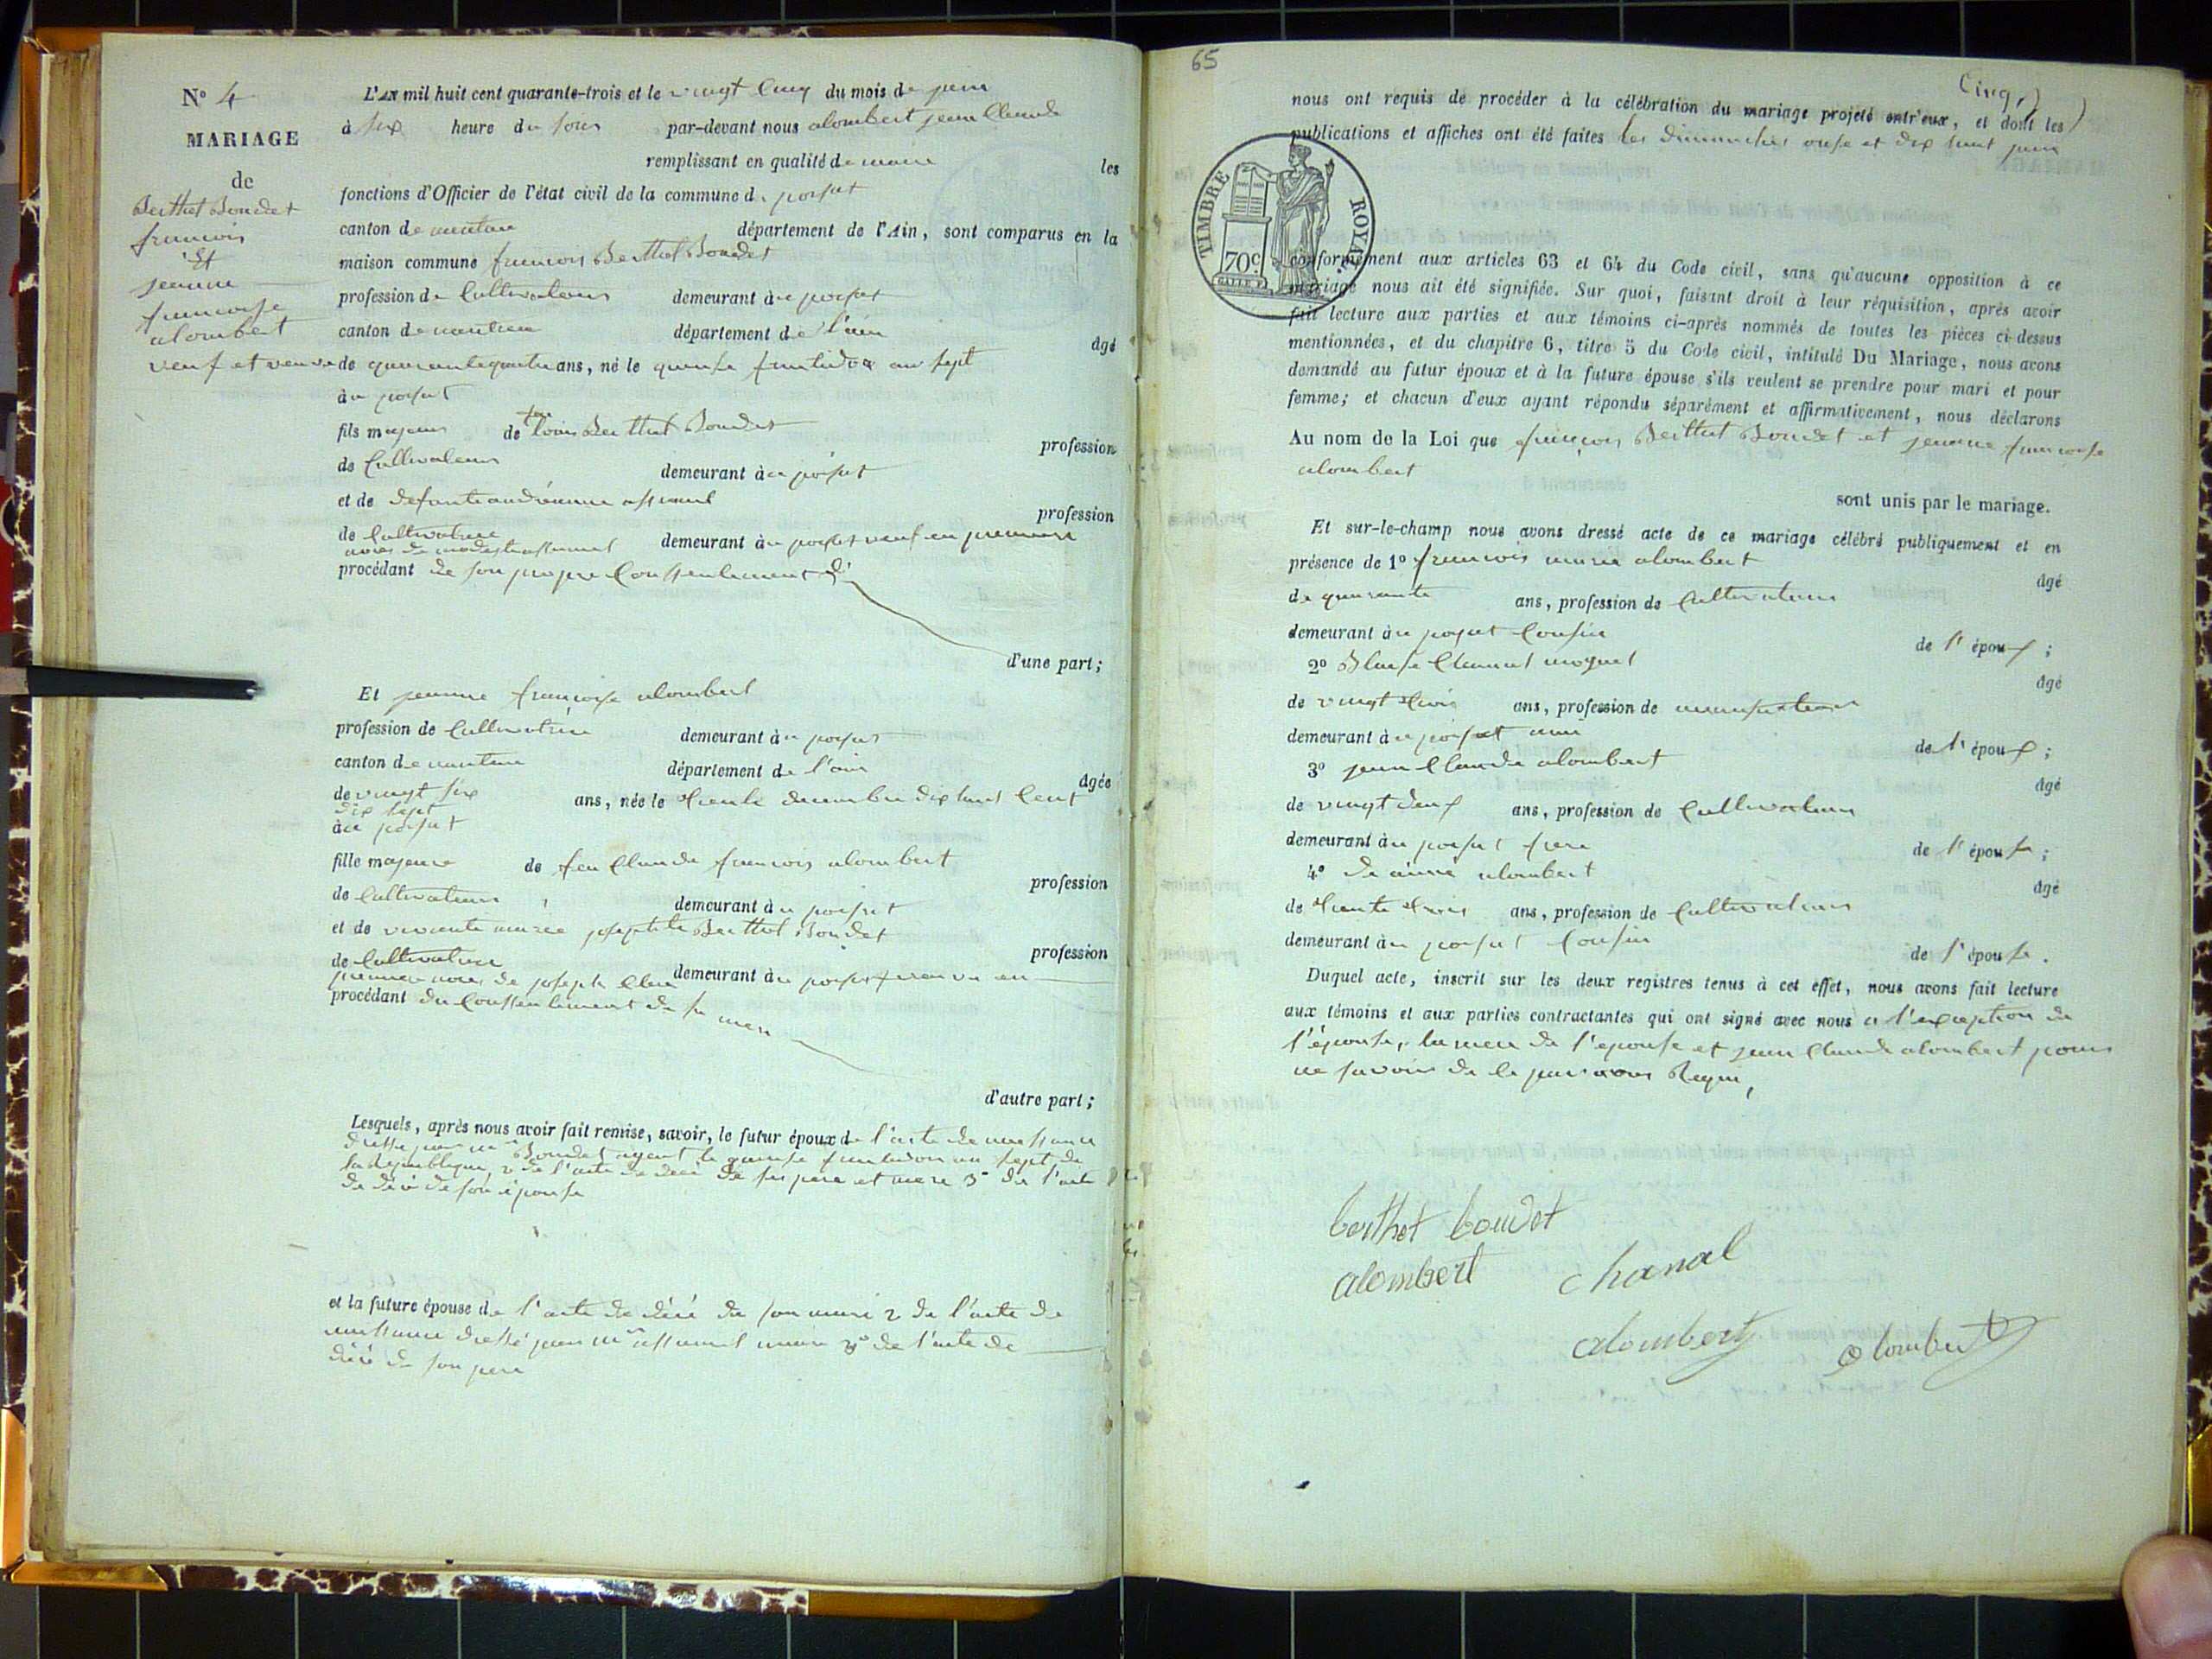 N° 4
MARIAGE
de
Berthet Bondet
francois
Et
jeanne
francoise
alombert
veuf et veuve
L'AN mil huit cent quarante-trois et le vingt cinq du mois de juin
à six heure du soir par-devant nous alombert jean Claude
remplissant en qualité de maire les
fonctions d'Officier de l'état civil de la commune de
canton de nantua département de l'Ain, sont comparus en la
maison commune francois Berthet Bondet
profession de Cultivateur demeurant à
canton de nantua département de l'ain
âgé
de quarante quatre ans, né le quinse fructidor an sept
à
fils majeur de feu Louis Berthet Bondet
profession
de Cultivateur demeurant à
et de defunte andréanne
profession
de Cultivatrice demeurant à veuf en premiere
noces de modeste
procédant de son propre Conssentement
d'une part;
Et jeanne françoise alombert
profession de Cultivatrice demeurant à
canton de nantua département de l'ain
âgée
de vingt six ans, née le trente decembre dix huit Cent
dix sept
à
fille majeure de feu Claude francois alombert
profession
de Cultivateur demeurant à
et de vivante marie josephte Berthet Bondet
profession
de Cultivatrice demeurant à veuve en
premiere noces de joseph
procédant du Conssentement de sa mere
d'autre part;
Lesquels, après nous avoir fait remise, savoir, le futur époux de l'acte de naissance
dressé par Bondet agent le quinse fructidor an sept de
la republique, 2 de l'acte de décé de ses pere et mere 3° de l'acte
de décé de son épouse
et la future épouse de l'acte de décé de son mari 2 de l'acte de
naissance dressé par maire 3° de l'acte de
décé de son pere
65
Cinq
nous ont requis de procéder à la célébration du mariage projeté entr'eux, et dont les
publications et affiches ont été faites les dimanches onse et dix huit juin
TIMBRE ROYAL
70c
conformément aux articles 63 et 64 du Code civil, sans qu'aucune opposition à ce
mariage nous ait été signifiée. Sur quoi, faisant droit à leur réquisition, après avoir
fait lecture aux parties et aux témoins ci-après nommés de toutes les pièces ci-dessus
mentionnées, et du chapitre 6, titre 5 du Code civil, intitulé Du Mariage, nous avons
demandé au futur époux et à la future épouse s'ils veulent se prendre pour mari et pour
femme; et chacun d'eux ayant répondu séparément et affirmativement, nous déclarons
Au nom de la Loi que françois Berthet Bondet et jeanne francoise
alombert
sont unis par le mariage.
Et sur-le-champ nous avons dressé acte de ce mariage célébré publiquement et en
présence de 1° francois marie alombert
âgé
de quarante ans, profession de Cultivateur
demeurant à Cousin de l'époux;
2° Blaise Clement
âgé
de vingt trois ans, profession de
demeurant à ami de l'époux;
3° jean Claude alombert
âgé
de vingt deux ans, profession de Cultivateur
demeurant à frere de l'épouse;
4° alombert
âgé
de trente trois ans, profession de Cultivateur
demeurant à Cousin de l'épouse.
Duquel acte, inscrit sur les deux registres tenus à cet effet, nous avons fait lecture
aux témoins et aux parties contractantes qui ont signé avec nous a l'exception de
l'épouse, la mere de l'epouse et jean Claude alombert pour
ne savoir de ce par nous Requi,
berthet boudet
alombert chanal
alombert alombert